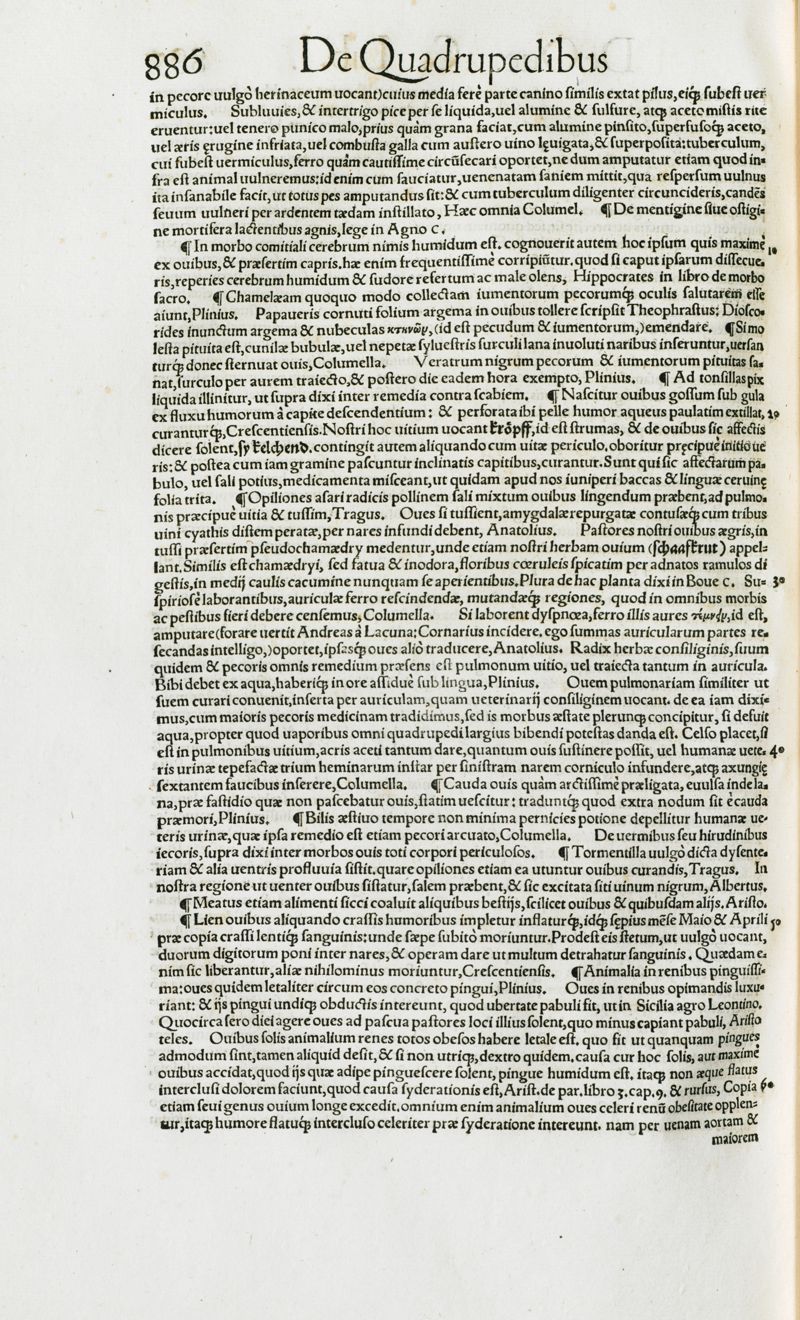 886 De Quadrupedibus
in pecore uulgò herinaceum uocant)cuius media ferè parte canino ſimilis extat pilus, eiq́ꝫ ſubeſt uer-
miculus. Subluuies, & intertrigo pice per ſe liquida, uel alumine & ſulfure, atqꝫ aceto miſtis rite
eruentur: uel tenero punico malo, prius quàm grana faciat, cum alumine pinſito, ſuperfuſoq́ꝫ aceto,
uel æris ęrugine infriata, uel combuſta galla cum auſtero uino lęuigata, & ſuperpoſita: tuberculum,
cui ſubeſt uermiculus, ferro quàm cautiſſime circũſecari oportet, ne dum amputatur etiam quod in-
fra eſt animal uulneremus: id enim cum ſauciatur, uenenatam ſaniem mittit, qua reſperſum uulnus
ita inſanabile facit, ut totus pes amputandus ſit: & cum tuberculum diligenter circuncideris, candẽs
ſeuum uulneri per ardentem tædam inſtillato, Hæc omnia Columel. ¶ De mentigine ſiue oſtigi-
ne mortifera lactentibus agnis, lege in Agno c.
¶ In morbo comitiali cerebrum nimis humidum eſt. cognouerit autem hoc ipſum quis maximè 10
ex ouibus, & præſertim capris. hæ enim frequentiſſimè corripiũtur. quod ſi caput ipſarum diſſecue-
ris, reperies cerebrum humidum & ſudore refertum ac male olens, Hippocrates in libro de morbo
ſacro. ¶ Chamelæam quoquo modo collectam iumentorum pecorumq́ꝫ oculis ſalutarem eſſe
aiunt, Plinius. Papaueris cornuti folium argema in ouibus tollere ſcripſit Theophraſtus: Dioſco-
rides inunctum argema & nubeculas κτηνῶν, (id eſt pecudum & iumentorum,) emendare. ¶ Si mo
leſta pituita eſt, cunilæ bubulæ, uel nepetæ ſylueſtris ſurculi lana inuoluti naribus inſeruntur, uerſan
turq́ꝫ donec ſternuat ouis, Columella. Veratrum nigrum pecorum & iumentorum pituitas ſa-
nat, ſurculo per aurem traiecto, & poſtero die eadem hora exempto, Plinius. ¶ Ad tonſillas pix
liquida illinitur, ut ſupra dixi inter remedia contra ſcabiem. ¶ Naſcitur ouibus goſſum ſub gula
ex fluxu humorum à capite deſcendentium: & perforata ibi pelle humor aqueus paulatim extillat, 20
curanturq́ꝫ, Creſcentienſis. Noſtri hoc uitium uocant kröpff, id eſt ſtrumas, & de ouibus ſic affectis
dicere ſolent, ſy kelchend. contingit autem aliquando cum uitæ periculo, oboritur pręcipuè initio ue
ris: & poſtea cum iam gramine paſcuntur inclinatis capitibus, curantur. Sunt qui ſic affectarum pa-
bulo, uel ſali potius, medicamenta miſceant, ut quidam apud nos iuniperi baccas & linguæ ceruinę
folia trita. ¶ Opiliones aſari radicis pollinem ſali mixtum ouibus lingendum præbent, ad pulmo-
nis præcipuè uitia & tuſſim, Tragus. Oues ſi tuſſient, amygdalæ repurgatæ contuſæq́ꝫ cum tribus
uini cyathis diſtemperatæ, per nares infundi debent, Anatolius. Paſtores noſtri ouibus ægris, in
tuſſi præſertim pſeudochamædry medentur, unde etiam noſtri herbam ouium (ſchaafkrut) appel-
lant. Similis eſt chamædryi, ſed fatua & inodora, floribus cœruleis ſpicatim per adnatos ramulos di
geſtis, in medij caulis cacumine nunquam ſe aperientibus. Plura de hac planta dixi in Boue c. Su- 30
ſpirioſè laborantibus, auriculæ ferro reſcindendæ, mutandæq́ꝫ regiones, quod in omnibus morbis
ac peſtibus fieri debere cenſemus, Columella. Si laborent dyſpnœa, ferro illis aures τέμνειν, id eſt,
amputare (forare uertit Andreas à Lacuna: Cornarius incidere. ego ſummas auricularum partes re-
ſecandas intelligo,) oportet, ipſasq́ꝫ oues aliò traducere, Anatolius. Radix herbæ conſiliginis, ſuum
quidem & pecoris omnis remedium præſens eſt pulmonum uitio, uel traiecta tantum in auricula.
Bibi debet ex aqua, haberiq́ꝫ in ore aſſiduè ſub lingua, Plinius. Ouem pulmonariam ſimiliter ut
ſuem curari conuenit, inſerta per auriculam, quam ueterinarij conſiliginem uocant. de ea iam dixi-
mus, cum maioris pecoris medicinam tradidimus, ſed is morbus æſtate plerunqꝫ concipitur, ſi defuit
aqua, propter quod uaporibus omni quadrupedi largius bibendi poteſtas danda eſt. Celſo placet, ſi
eſt in pulmonibus uitium, acris aceti tantum dare, quantum ouis ſuſtinere poſſit, uel humanæ uete- 40
ris urinæ tepefactæ trium heminarum inſtar per ſiniſtram narem corniculo infundere, atqꝫ axungię
ſextantem faucibus inſerere, Columella. ¶ Cauda ouis quàm arctiſſimè præligata, euulſa inde la-
na, præ faſtidio quæ non paſcebatur ouis, ſtatim ueſcitur: traduntq́ꝫ quod extra nodum ſit è cauda
præmori, Plinius. ¶ Bilis æſtiuo tempore non minima pernicies potione depellitur humanæ ue-
teris urinæ, quæ ipſa remedio eſt etiam pecori arcuato, Columella. De uermibus ſeu hirudinibus
iecoris, ſupra dixi inter morbos ouis toti corpori periculoſos. ¶ Tormentilla uulgò dicta dyſente-
riam & alia uentris profluuia ſiſtit. quare opiliones etiam ea utuntur ouibus curandis, Tragus. In
noſtra regione ut uenter ouibus ſiſtatur, ſalem præbent, & ſic excitata ſiti uinum nigrum, Albertus.
¶ Meatus etiam alimenti ſicci coaluit aliquibus beſtijs, ſcilicet ouibus & quibuſdam alijs. Ariſto.
¶ Lien ouibus aliquando craſſis humoribus impletur inflaturq́ꝫ, idq́ꝫ ſępius mẽſe Maio & Aprili 50
præ copia craſſi lentiq́ꝫ ſanguinis: unde ſæpe ſubitò moriuntur. Prodeſt eis ſtetum, ut uulgò uocant,
duorum digitorum poni inter nares, & operam dare ut multum detrahatur ſanguinis. Quædam e-
nim ſic liberantur, aliæ nihilominus moriuntur, Creſcentienſis. ¶ Animalia in renibus pinguiſſi-
ma: oues quidem letaliter circum eos concreto pingui, Plinius. Oues in renibus opimandis luxu-
riant: & ijs pingui undiqꝫ obductis intereunt, quod ubertate pabuli fit, ut in Sicilia agro Leontino.
Quocirca ſero diei agere oues ad paſcua paſtores loci illius ſolent, quo minus capiant pabuli, Ariſto
teles. Ouibus ſolis animalium renes totos obeſos habere letale eſt. quo fit ut quanquam pingues
admodum ſint, tamen aliquid deſit, & ſi non utriqꝫ, dextro quidem. cauſa cur hoc ſolis, aut maximè
ouibus accidat, quod ijs quæ adipe pingueſcere ſolent, pingue humidum eſt. itaqꝫ non æque flatus
intercluſi dolorem faciunt, quod cauſa ſyderationis eſt, Ariſt. de par. libro 3. cap. 9. & rurſus, Copia 60
etiam ſeui genus ouium longe excedit. omnium enim animalium oues celeri renũ obeſitate opplen-
tur, itaqꝫ humore flatuq́ꝫ intercluſo celeriter præ ſyderatione intereunt. nam per uenam aortam &
maiorem